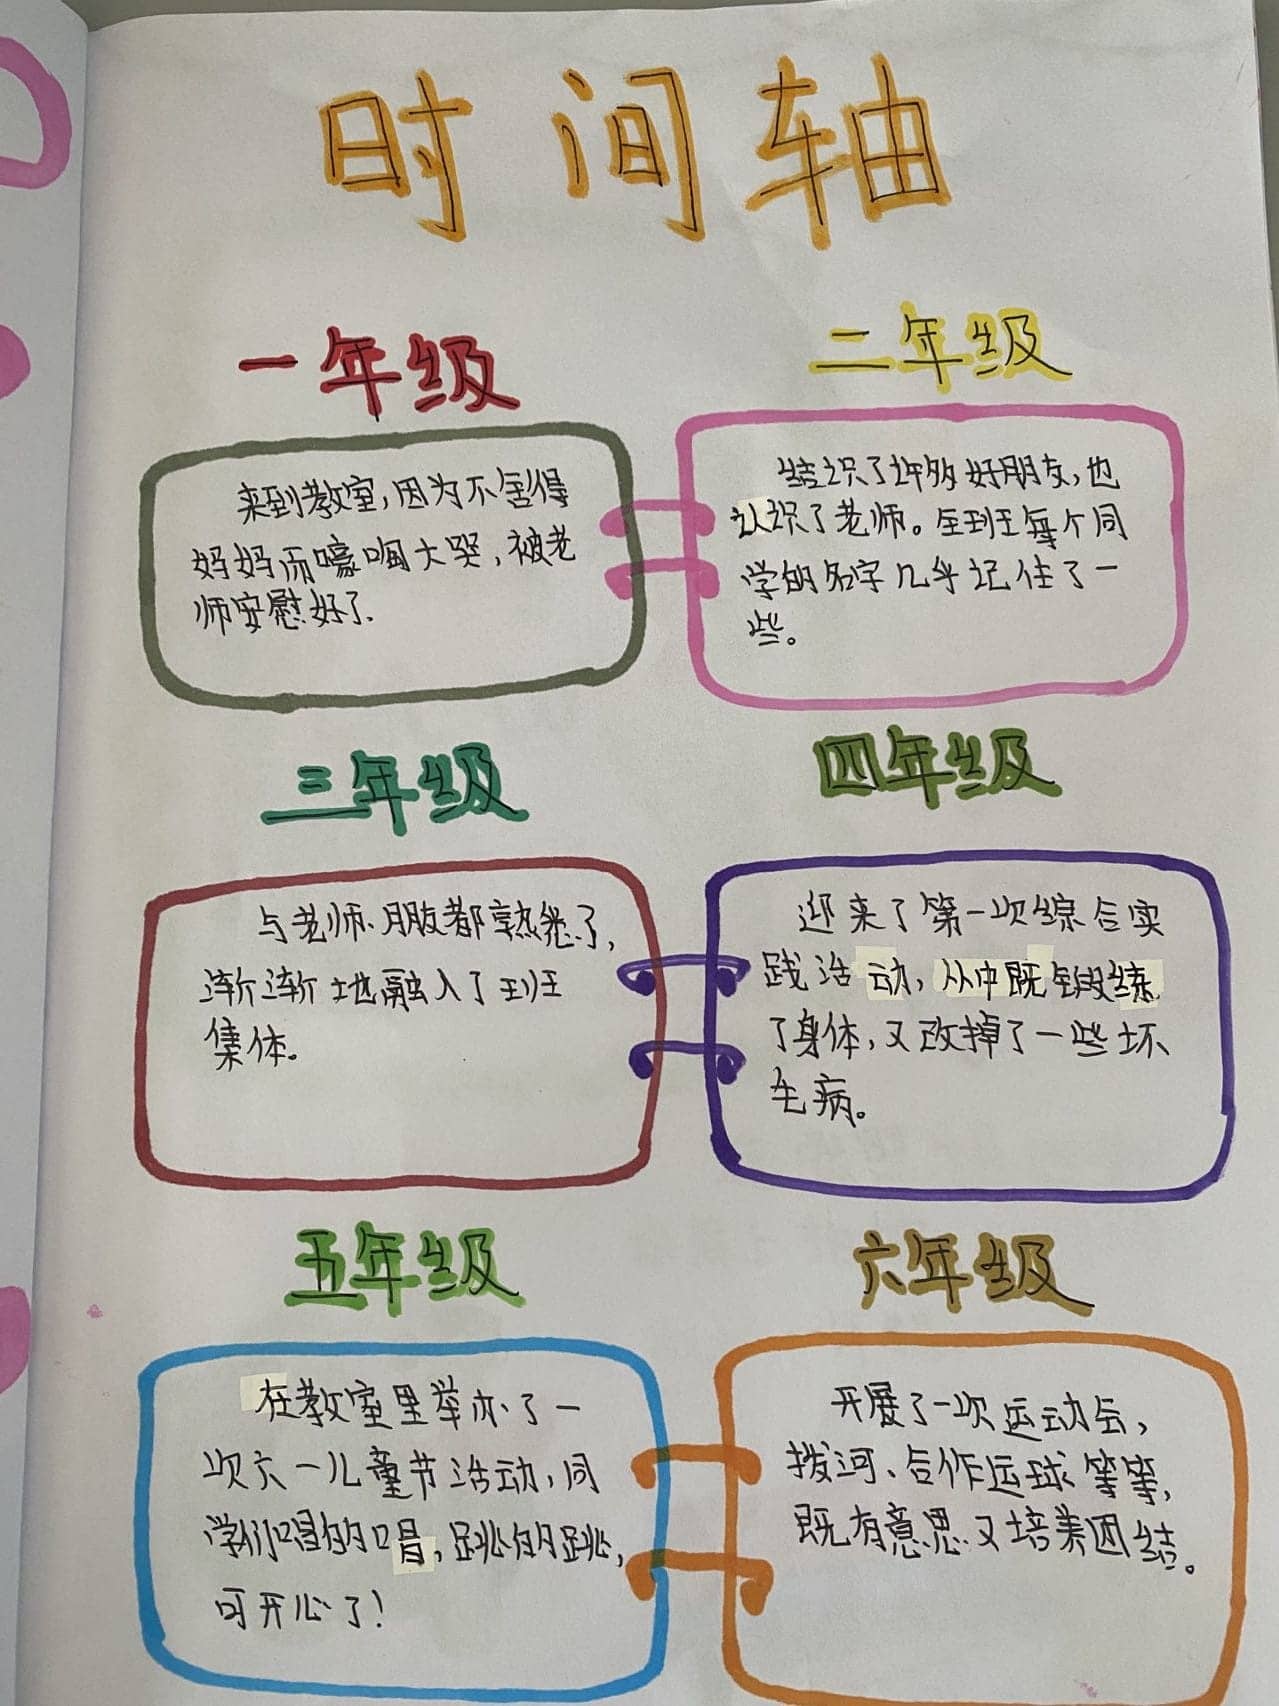 时间轴
一年级
来到教室,因为不舍得
妈妈而嚎啕大哭,被老
师安慰好了.
二年级
结识了许多好朋友,也
认识了老师。全班每个同
学的名字几乎记住了一
些。
三年级
与老师、朋友都熟悉了,
渐渐地融入了班
集体。
四年级
迎来了第一次综合实
践活动,从中既锻练
了身体,又改掉了一些坏
毛病。
五年级
在教室里举办了一
次六一儿童节活动,同
学们唱的唱,跳的跳,
可开心了!
六年级
开展了一次运动会,
拨河、合作运球等等,
既有意思又培养团结。